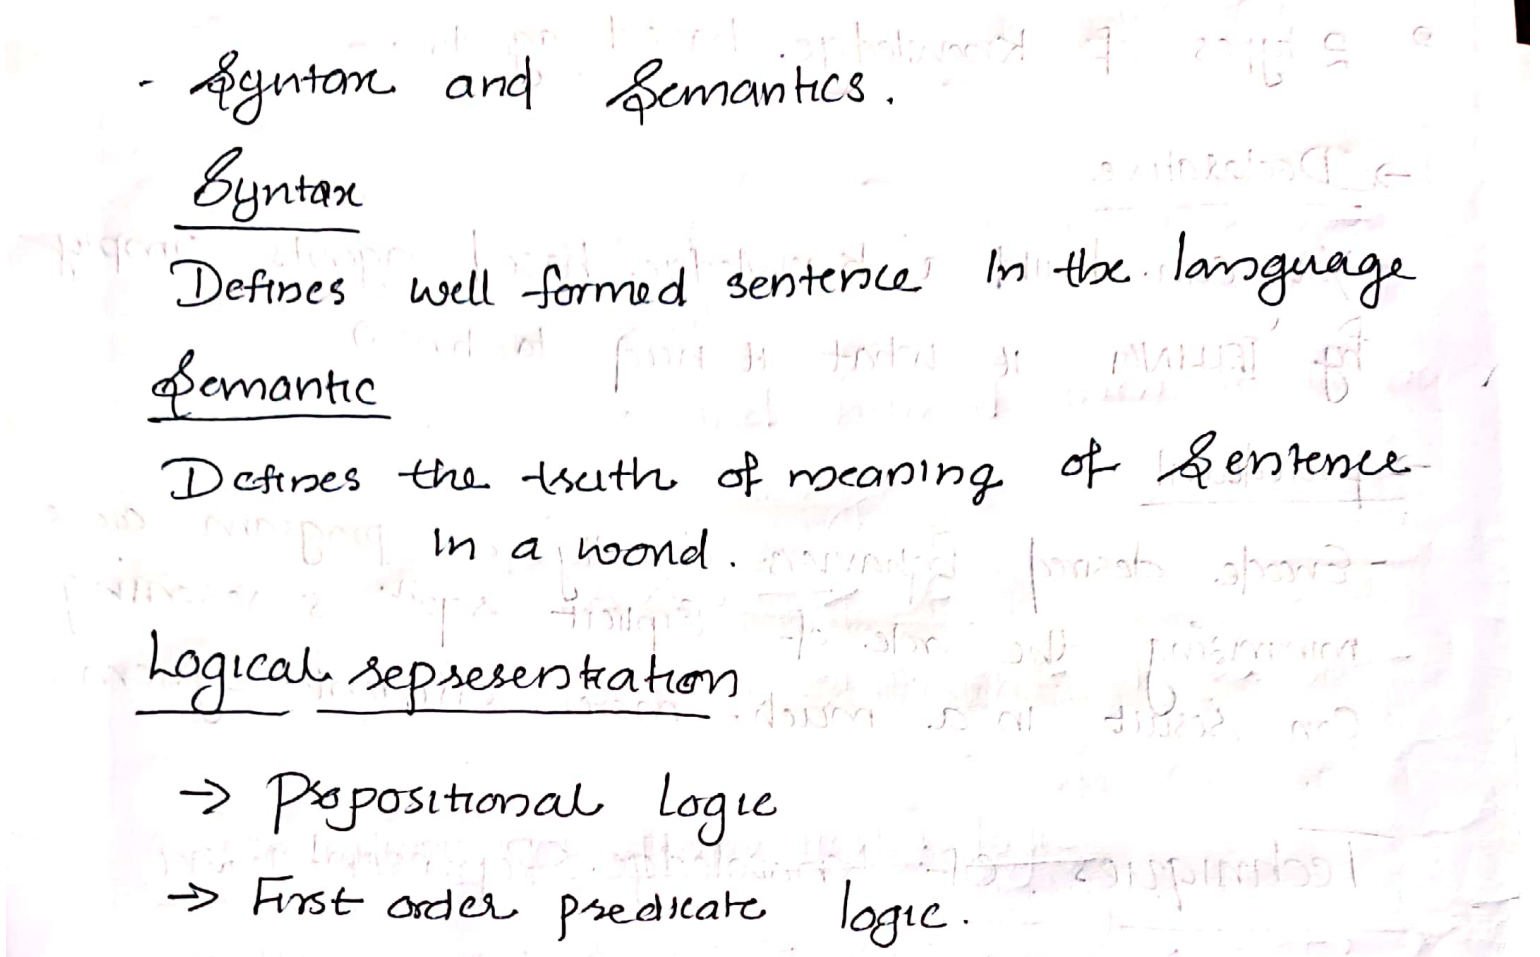 - Syntax and Semantics.
Syntax
Defines well formed sentence in the language
Semantic
Defines the truth of meaning of Sentence
in a word.
Logical representation
→ Propositional Logic
→ First order predicate logic.